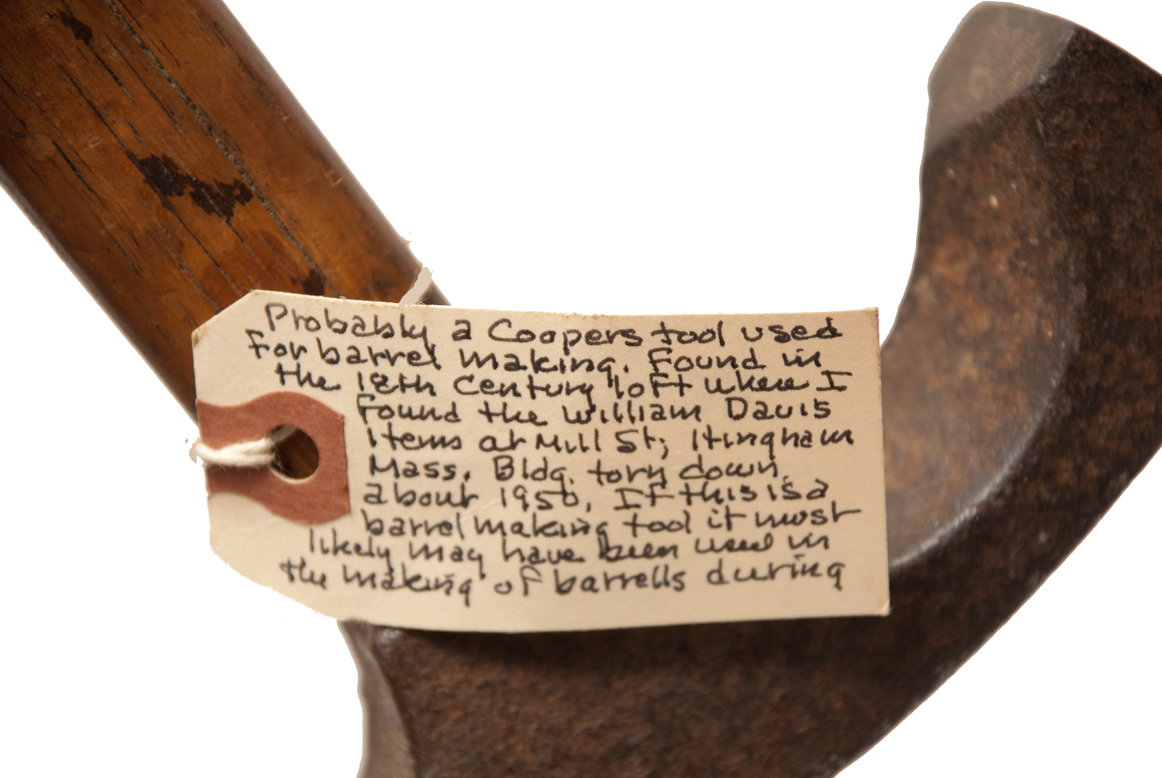 Probably a Coopers tool used
for barrel making. Found in
the 18th Century loft where I
found the William Davis
items at Mill St; Hingham
Mass. Bldg. torn down
about 1950. If this is a
barrel making tool it most
likely may have been used in
the making of barrells during